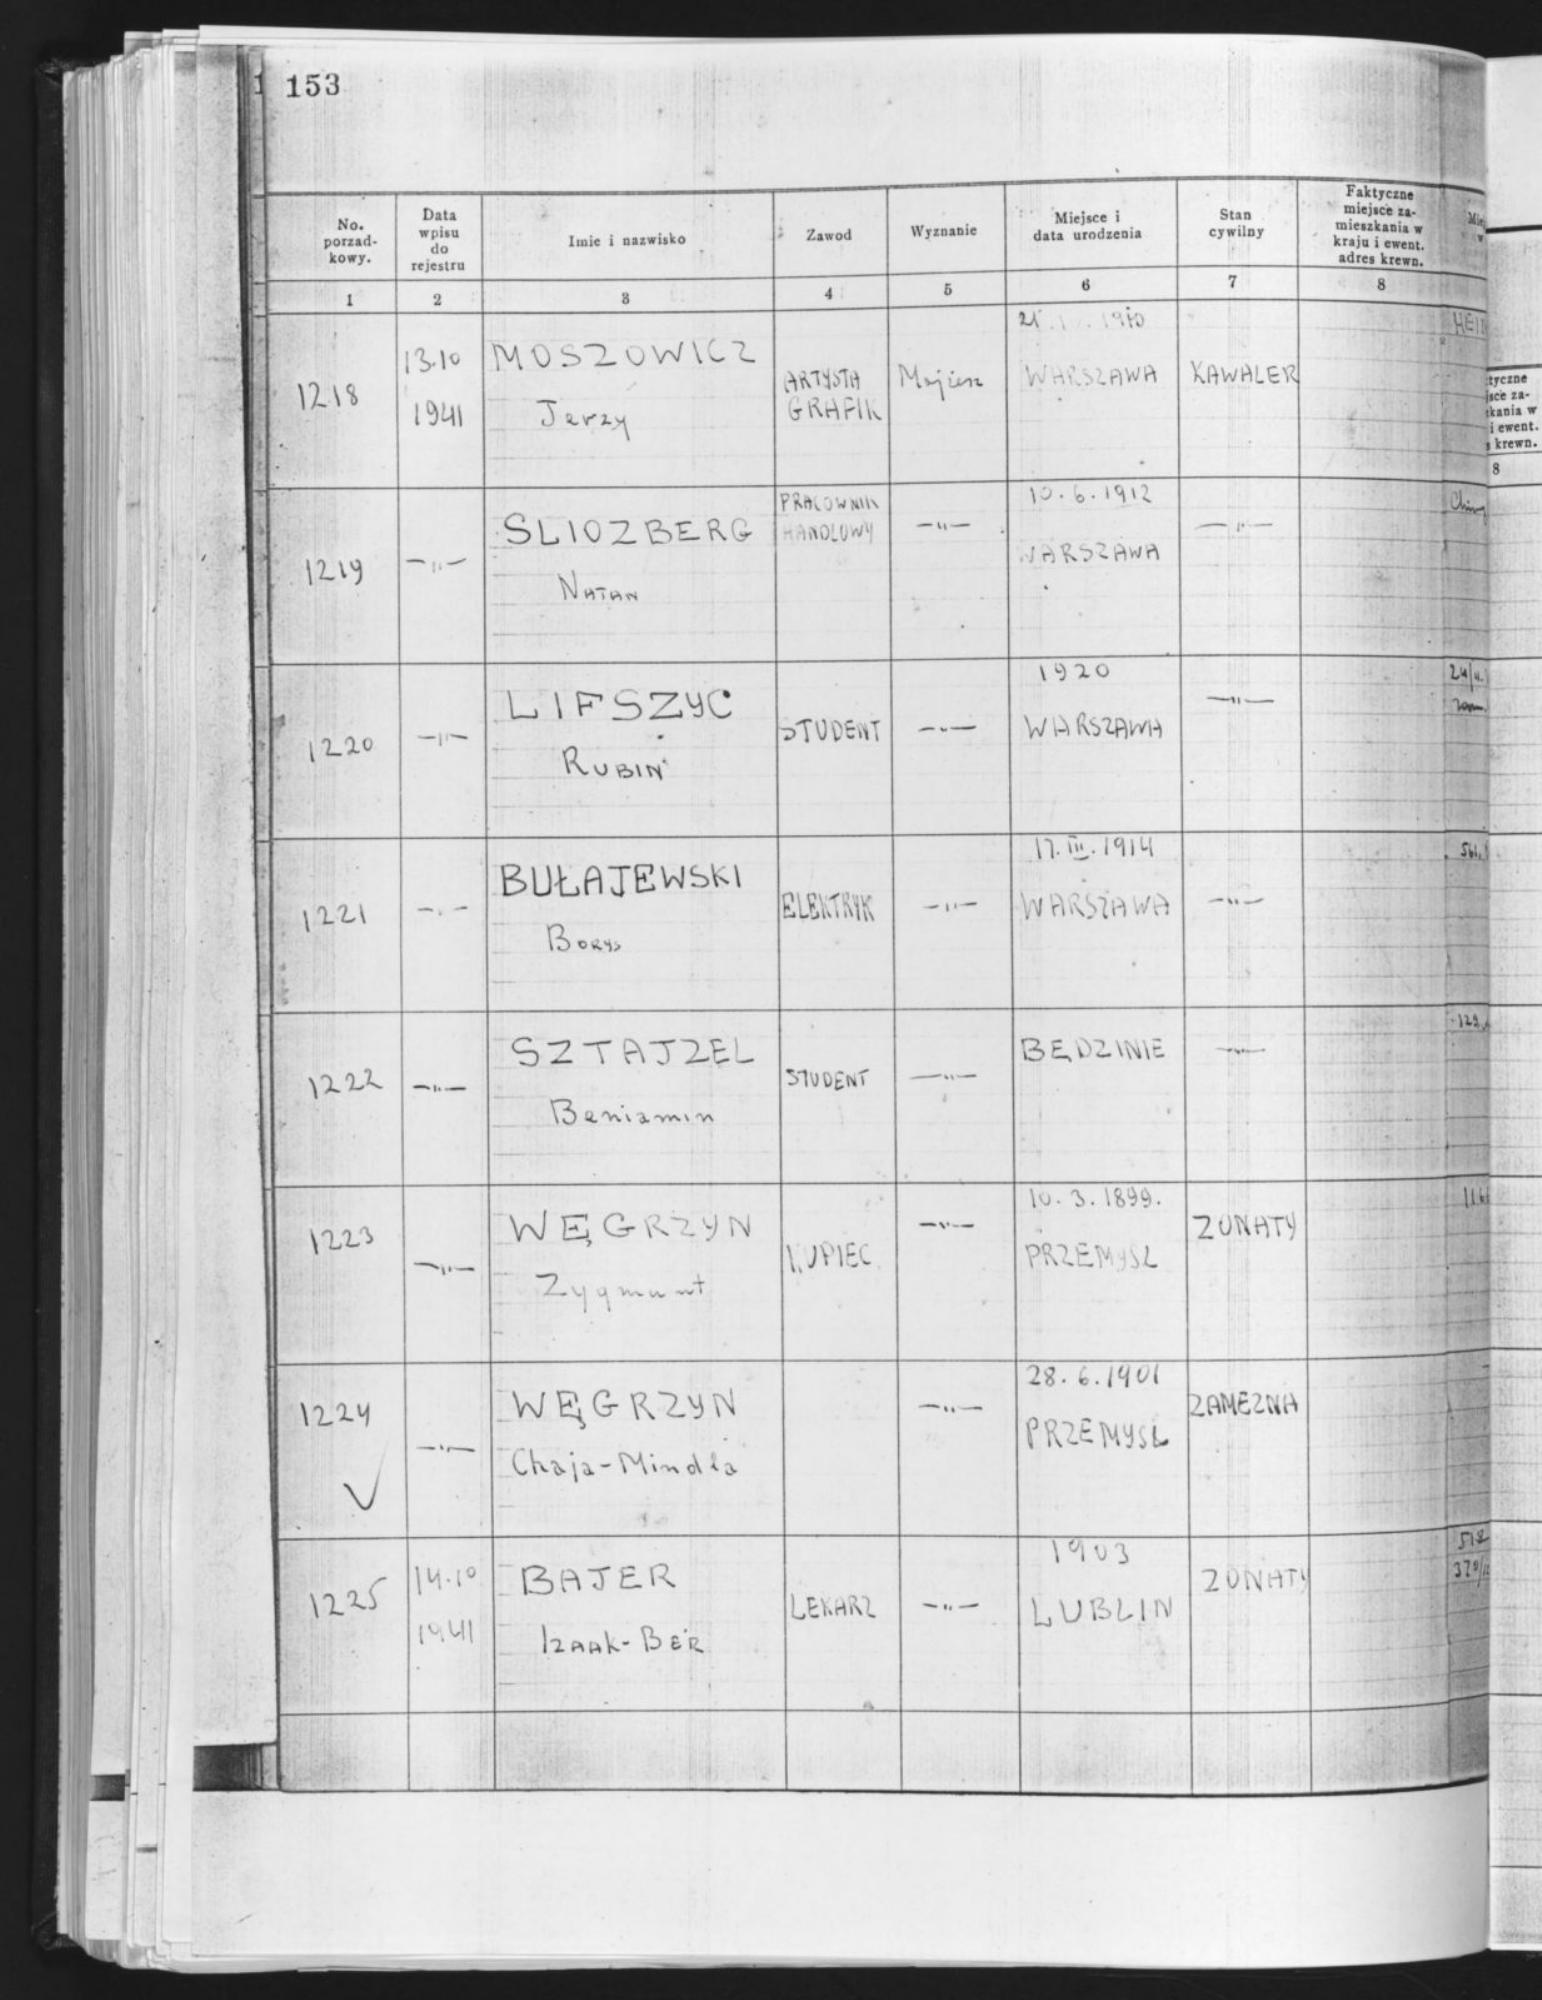 153
No. porzad- kowy.
Data wpisu do rejestru
Imie i nazwisko
Zawod
Wyznanie
Miejsce i data urodzenia
Stan cywilny
Faktyczne miejsce za- mieszkania w kraju i ewent. adres krewn.
1 2 3 4 5 6 7 8
1218
13.10 1941
MOSZOWICZ
Jerzy
ARTYSTA GRAFIK
Mojżesz
1910
WARSZAWA
KAWALER
1219
—"—
SLIOZBERG
NATAN
PRACOWNIK HANDLOWY
—"—
10.6.1912
WARSZAWA
—"—
1220
—"—
LIFSZYC
RUBIN
STUDENT
—"—
1920
WARSZAWA
—"—
1221
—"—
BUŁAJEWSKI
BORYS
ELEKTRYK
—"—
17.III.1914
WARSZAWA
—"—
1222
—"—
SZTAJZEL
Beniamin
STUDENT
—"—
BĘDZINIE
—"—
1223
—"—
WĘGRZYN
Zygmunt
KUPIEC
—"—
10.3.1899.
PRZEMYSL
ZONATY
1224
—"—
WĘGRZYN
Chaja-Mindla
—"—
28.6.1901
PRZEMYSL
ZAMEZNA
1225
14.10 1941
BAJER
IZAAK-BER
LEKARZ
—"—
1903
LUBLIN
ZONATY
tyczne
jsce za-
kania w
i ewent.
s krewn.
8